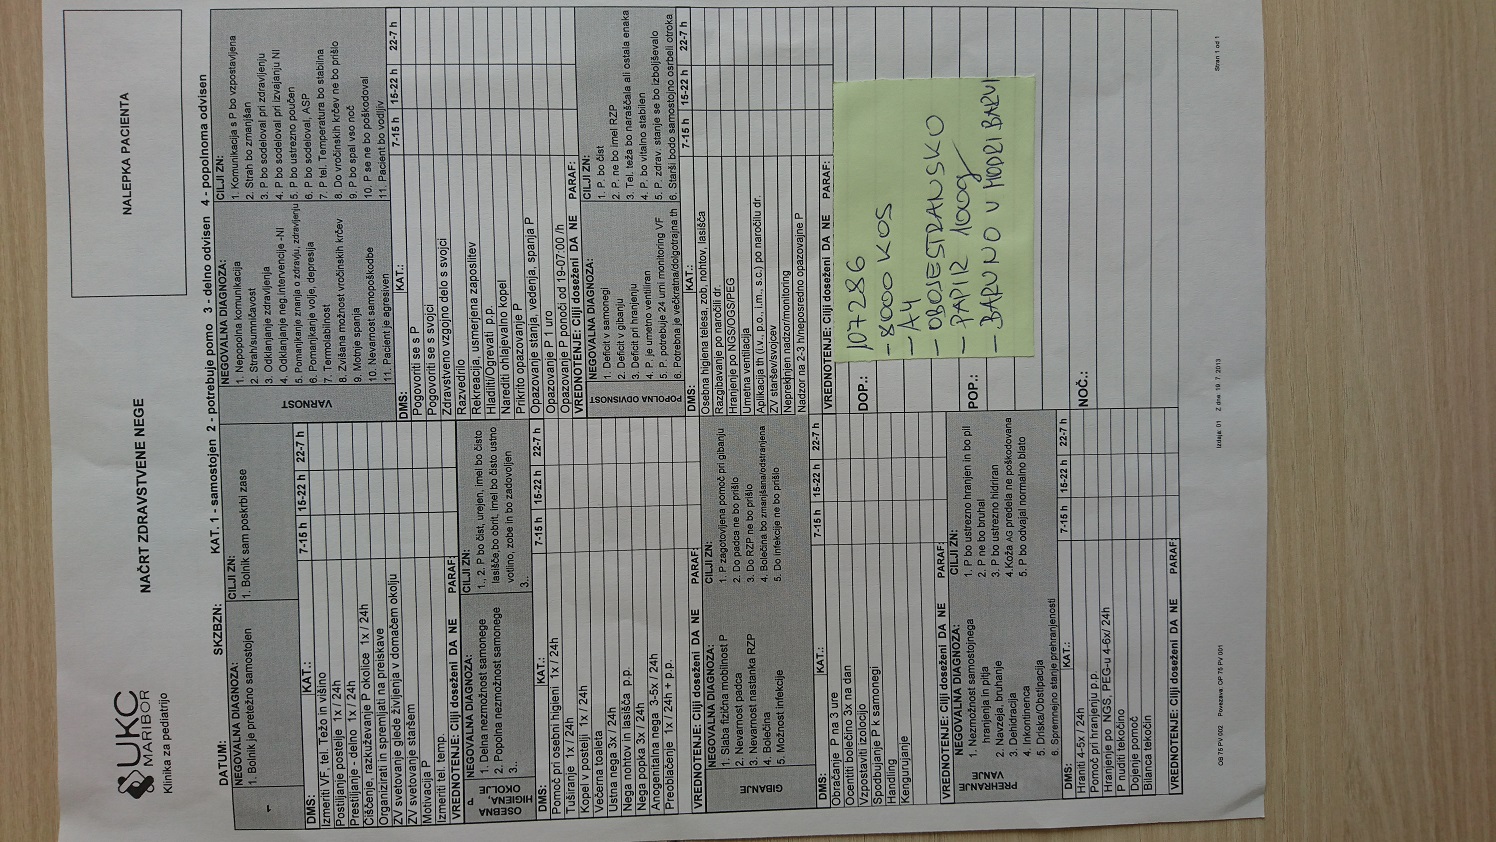 UKC
MARIBOR
Klinika za pediatrijo
NAČRT ZDRAVSTVENE NEGE
NALEPKA PACIENTA
DATUM:
SKZBZN:
KAT. 1 - samostojen 2 - potrebuje pomo 3 - delno odvisen 4 - popolnoma odvisen
1
NEGOVALNA DIAGNOZA:
1. Bolnik je pretežno samostojen
CILJI ZN:
1. Bolnik sam poskrbi zase
DMS:
KAT.:
7-15 h 15-22 h 22-7 h
Izmeriti VF, tel. Težo in višino
Postiljanje postelje 1x / 24h
Prestiljanje - delno 1x / 24h
Čiščenje, razkuževanje P okolice 1x / 24h
Organizirati in spremljati na preiskave
ZV svetovanje glede življenja v domačem okolju
ZV svetovanje staršem
Motivacija P
Izmeriti tel. temp.
VREDNOTENJE: Cilji doseženi DA NE PARAF:
OSEBNA HIGIENA, P OKOLJE
NEGOVALNA DIAGNOZA:
1. Delna nezmožnost samonege
2. Popolna nezmožnost samonege
3..
CILJI ZN:
1., 2. P bo čist, urejen, imel bo čisto
lasišče,bo obrit, imel bo čisto ustno
votlino, zobe in bo zadovoljen
3..
DMS:
KAT.:
7-15 h 15-22 h 22-7 h
Pomoč pri osebni higieni 1x / 24h
Tuširanje 1x / 24h
Kopel v postelji 1x / 24h
Večerna toaleta
Ustna nega 3x / 24h
Nega nohtov in lasišča p.p.
Nega popka 3x / 24h
Anogenitalna nega 3-5x / 24h
Preoblačenje 1x / 24h + p.p.
VREDNOTENJE: Cilji doseženi DA NE PARAF:
GIBANJE
NEGOVALNA DIAGNOZA:
1. Slaba fizična mobilnost P
2. Nevarnost padca
3. Nevarnost nastanka RZP
4. Bolečina
5. Možnost infekcije
CILJI ZN:
1. P zagotovljena pomoč pri gibanju
2. Do padca ne bo prišlo
3. Do RZP ne bo prišlo
4. Bolečina bo zmanjšana/odstranjena
5. Do infekcije ne bo prišlo
DMS:
KAT.:
7-15 h 15-22 h 22-7 h
Obračanje P na 3 ure
Ocentiti bolečino 3x na dan
Vzpostaviti izolocijo
Spodbujanje P k samonegi
Handling
Kengurujanje
VREDNOTENJE: Cilji doseženi DA NE PARAF:
PREHRANJE VANJE
NEGOVALNA DIAGNOZA:
1. Nezmožnost samostojnega
hranjenja in pitja
2. Navzeja, bruhanje
3. Dehidracija
4. Inkontinenca
5. Driska/Obstipacija
6. Spremnejno stanje prehranjenosti
CILJI ZN:
1. P bo ustrezno hranjen in bo pil
2. P ne bo bruhal
3. P bo ustrezno hidriran
4.Koža AG predela ne poškodovana
5. P bo odvajal normalno blato
DMS:
KAT.:
7-15 h 15-22 h 22-7 h
Hraniti 4-5x / 24h
Pomoč pri hranjenju p.p.
Hranjenje po NGS, PEG-u 4-6x/ 24h
P nuditi tekočino
Dojenje pomoč
Bilanca tekočin
VREDNOTENJE: Cilji doseženi DA NE PARAF:
VARNOST
NEGOVALNA DIAGNOZA:
1. Nepopolna komunikacija
2. Strah/sumničavost
3. Odklanjanje zdravljenja
4. Odklanjanje neg.intervencije -NI
5. Pomanjkanje znanja o zdravju, zdravljenju
6. Pomanjkanje volje, depresija
7. Termolabilnost
8. Zvišana možnost vročinskih krčev
9. Motnje spanja
10. Nevarnost samopoškodbe
11. Pacient je agresiven
CILJI ZN:
1. Komunikacija s P bo vzpostavljena
2. Strah bo zmanjšan
3. P bo sodeloval pri zdravljenju
4. P bo sodeloval pri izvajanju NI
5. P bo ustrezno poučen
6. P bo sodeloval, ASP
7. P tel. Temperatura bo stabilna
8. Do vročinskih krčev ne bo prišlo
9. P bo spal vso noč
10. P se ne bo poškodoval
11. Pacient bo vodljiv
DMS:
KAT.:
7-15 h 15-22 h 22-7 h
Pogovoriti se s P
Pogovoriti se s svojci
Zdravstveno vzgojno delo s svojci
Razvedrilo
Rekreacija, usmerjena zaposlitev
Hladiti/Ogrevati p.p.
Narediti ohlajevalno kopel
Prikrito opazovanje P
Opazovanje stanja, vedenja, spanja P
Opazovanje P 1 uro
Opazovanje P ponoči od 19-07:00 /h
VREDNOTENJE: Cilji doseženi DA NE PARAF:
POPOLNA ODVISNOST
NEGOVALNA DIAGNOZA:
1. Deficit v samonegi
2. Deficit v gibanju
3. Deficit pri hranjenju
4. P. je umetno ventiliran
5. P. potrebuje 24 urni monitoring VF
6. Potrebna je večkratna/dolgotrajna th
CILJI ZN:
1. P. bo čist
2. P. ne bo imel RZP
3. Tel. teža bo naraščala ali ostala enaka
4. P. bo vitalno stabilen
5. P. zdrav. stanje se bo izboljševalo
6. Starši bodo samostojno osrbeli otroka
DMS:
KAT.:
7-15 h 15-22 h 22-7 h
Osebna higiena telesa, zob, nohtov, lasišča
Razgibavanje po naročili dr.
Hranjenje po NGS/OGS/PEG
Umetna ventilacija
Aplikacija th (i.v., p.o., i.m., s.c.) po naročilu dr.
ZV staršev/svojcev
Neprekinjen nadzor/monitoring
Nadzor na 2-3 h/neposredno opazovajne P
VREDNOTENJE: Cilji doseženi DA NE PARAF:
DOP.:
POP.:
NOČ.:
107286
- 8000 KOS
- A4
- OBOJESTRANSKO
- PAPIR 100g
- BARVNO V MODRI BARVI
OB 75 PV 002 Povezava: OP 75 PV 001
Izdaja: 01 Z dne 19. 7. 2013
Stran 1 od 1